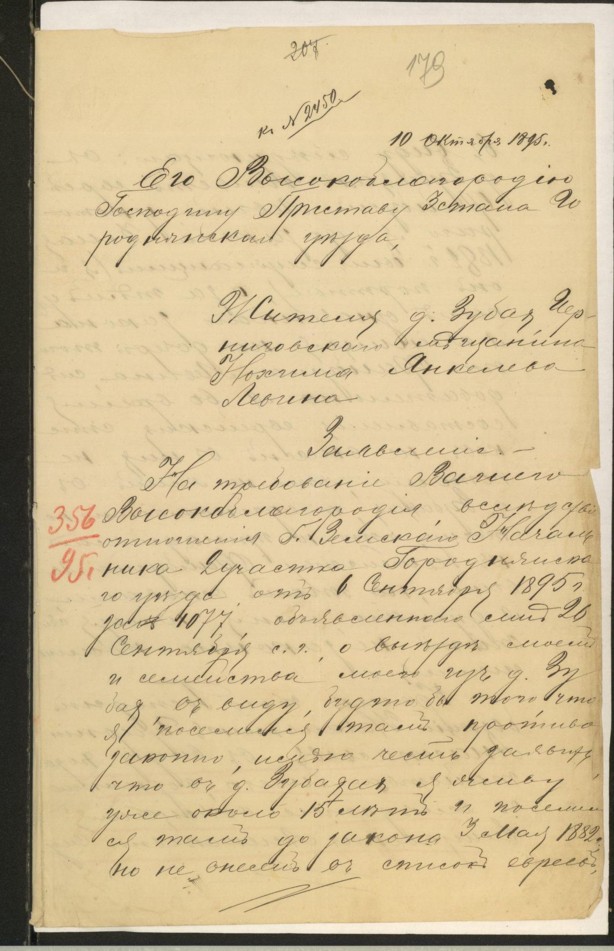 207.
179
к. № 2450
10 Октября 1895 г.
Его Высокоблагородію
Господину Приставу 3 стана Го
роднянскаго уѣзда,
Жителя д. Зубая Чер-
ниговскаго мѣщанина
Нохима Янкелева
Левина
Заявленіе
На требованіе Вашего
Высокоблагородія вслѣдствіе
отношенія г. Земскаго Началь
ника 2 участка Городнянска
го уѣзда отъ 6 Сентября 1895 г
за № 4077 объявленнаго мнѣ 26
Сентября с. г. о выѣздѣ моемъ
и семейства моего изъ д. Зу
бая въ виду будто бы того что
я поселился тамъ противо
законно, имѣю честь заявить
что въ д. Зубаяхъ я живу
уже около 15 лѣтъ и поселил
ся тамъ до закона 3 Мая 1882 г.
но не внесенъ въ списокъ евреевъ,
356
95 г.